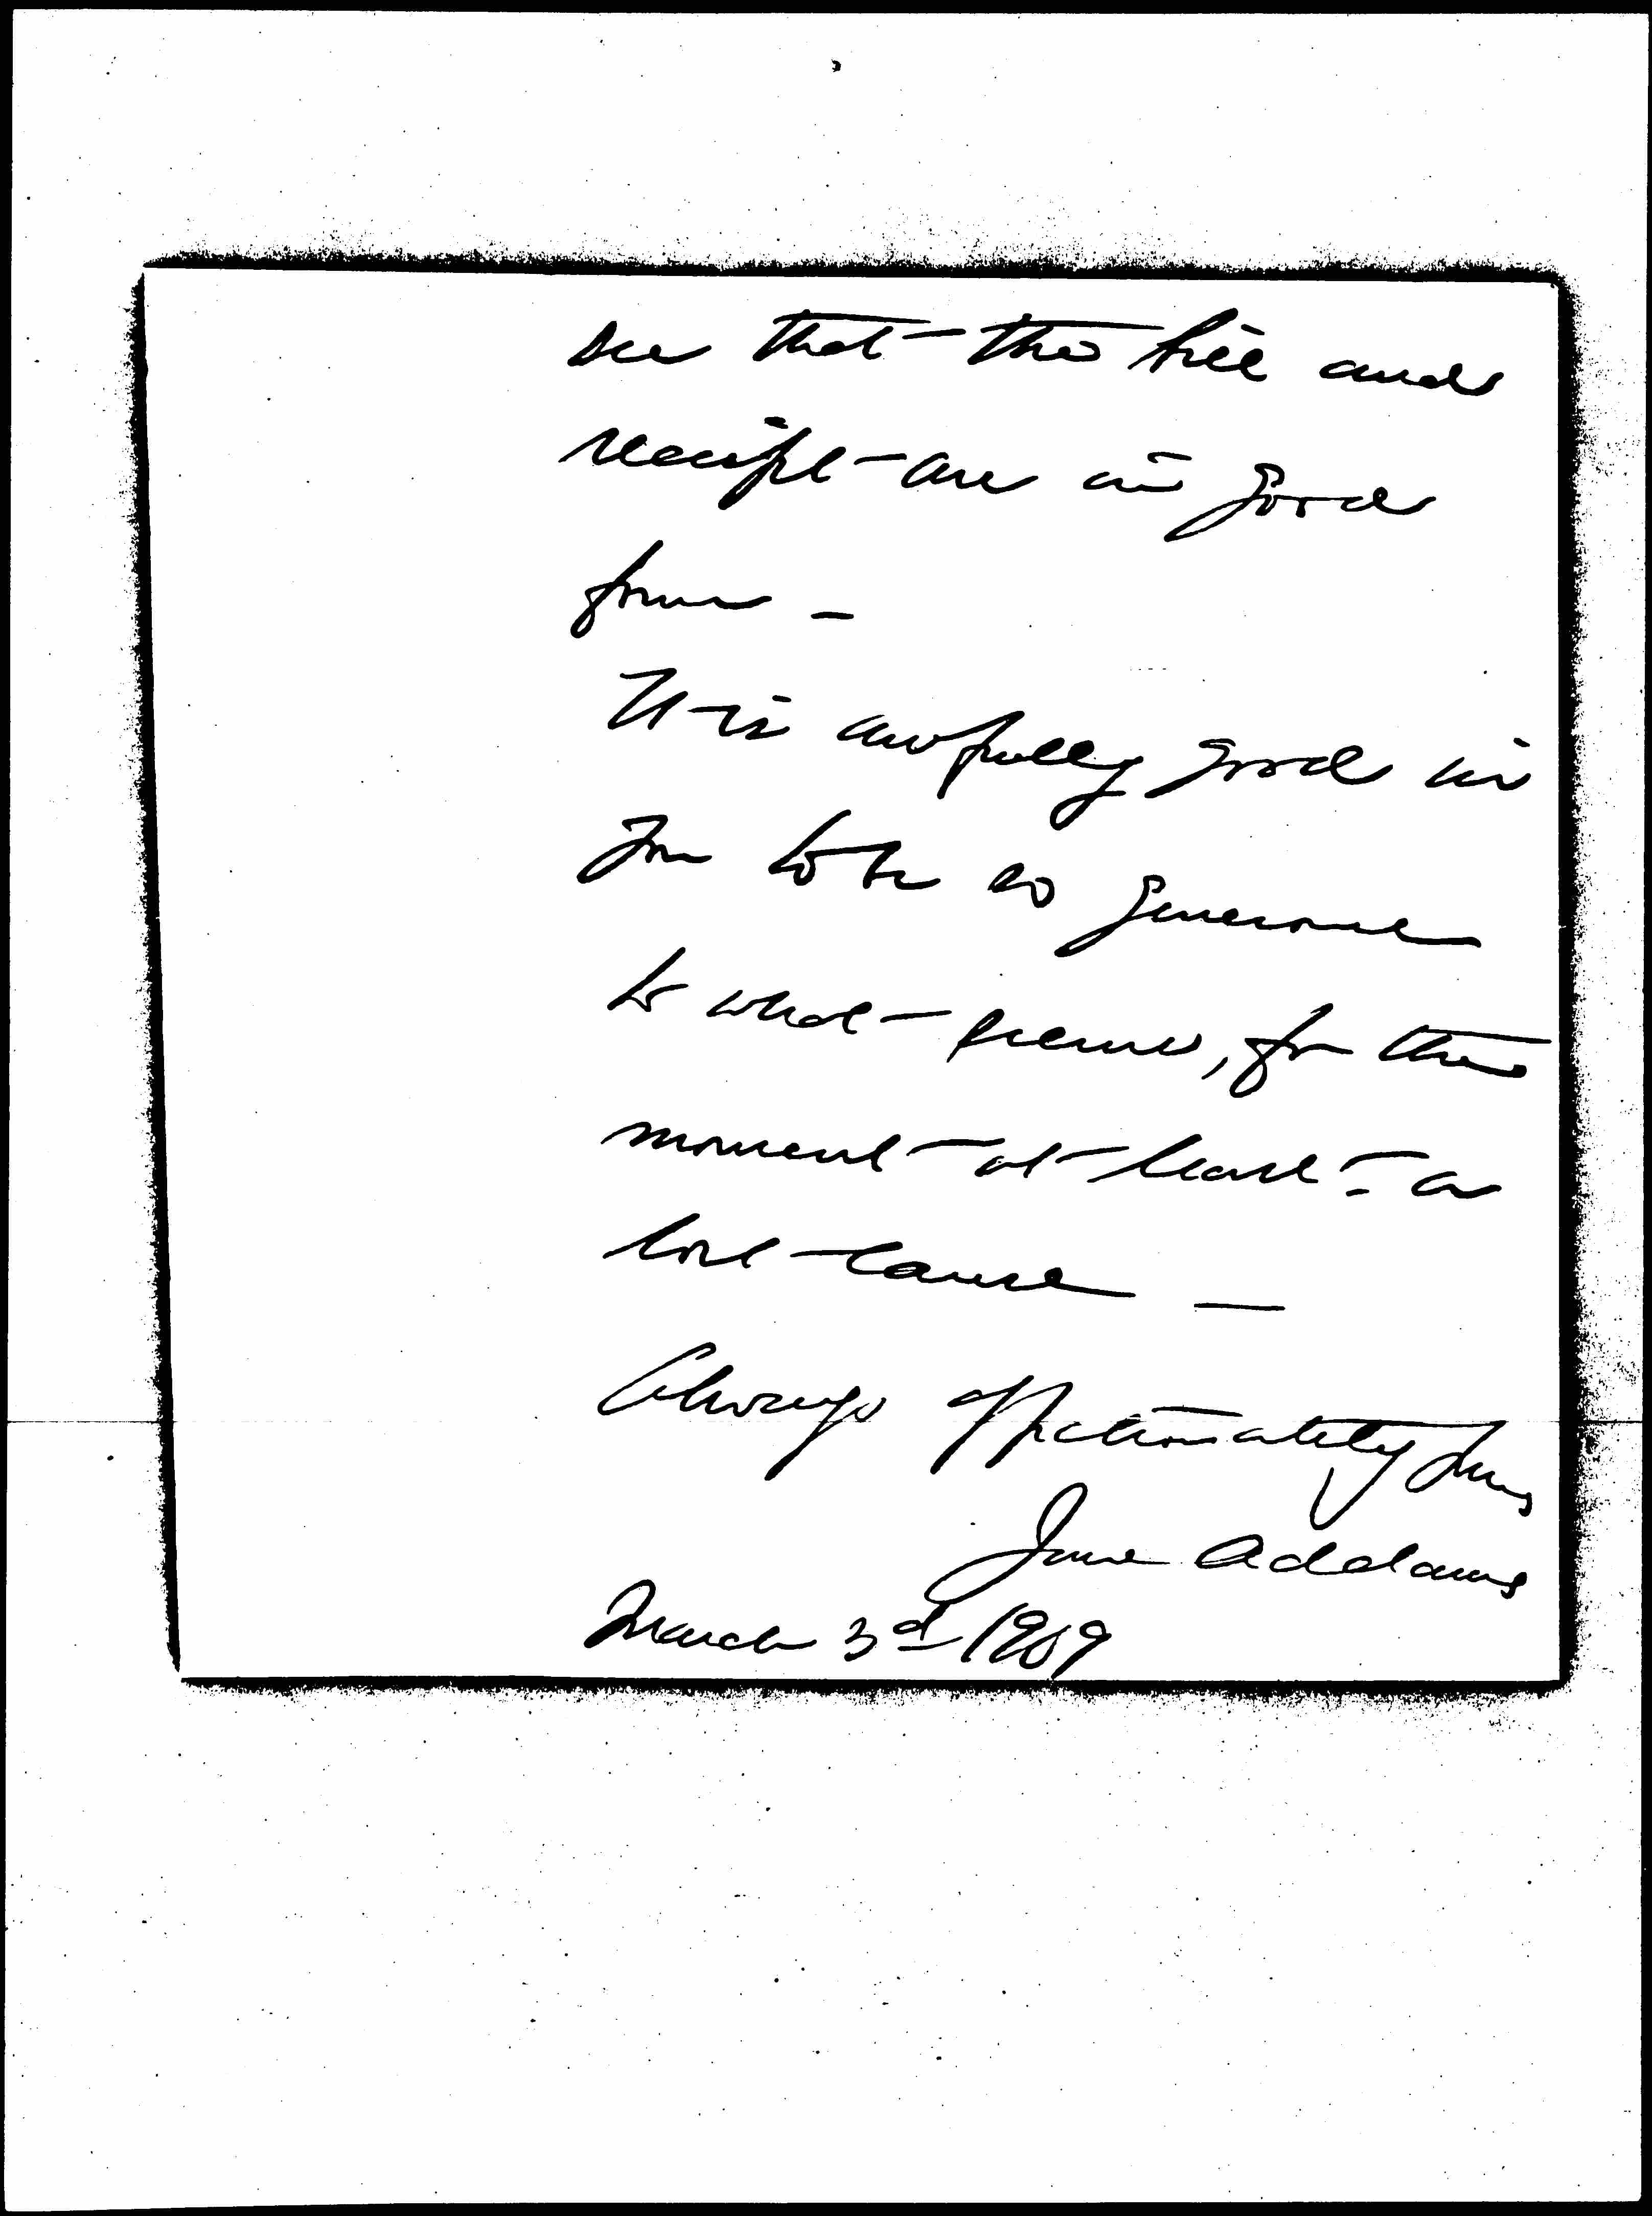 see that the bill and
receipt are in good
form –
It is awfully good in
you to be so generous
to what seems, for the
moment at least – a
lost cause —
Always affectionately yours
Jane Addams
March 3d 1909